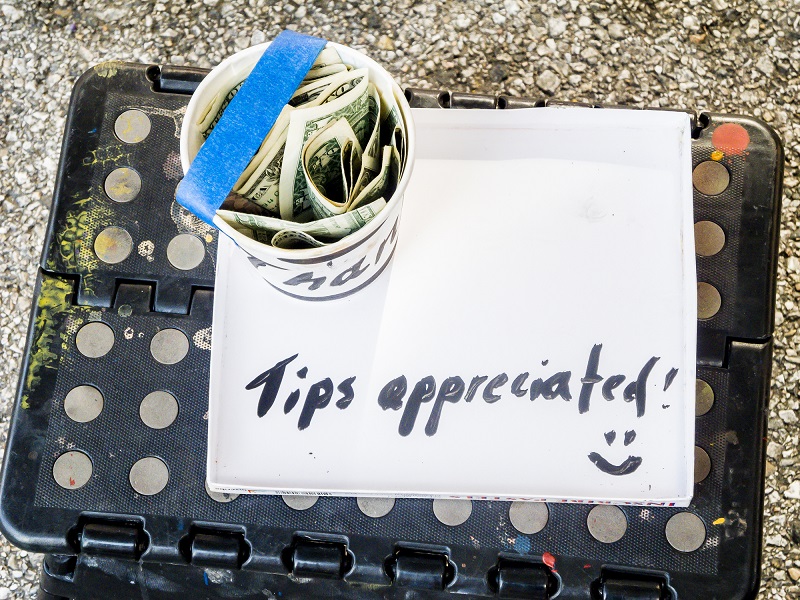 Tips appreciated!